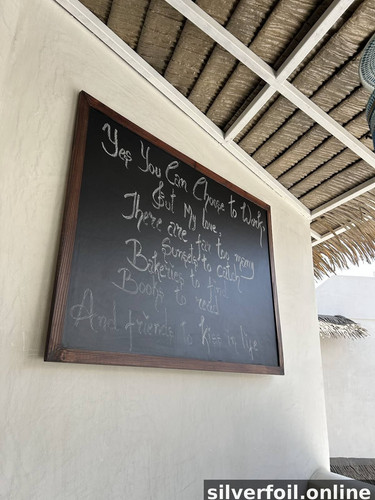 Yes You Can Choose to Work
But My love,
There are far too many
Sunsets to catch
Bakeries to find
Books to read
And friends to Kiss in life
silverfoil.online